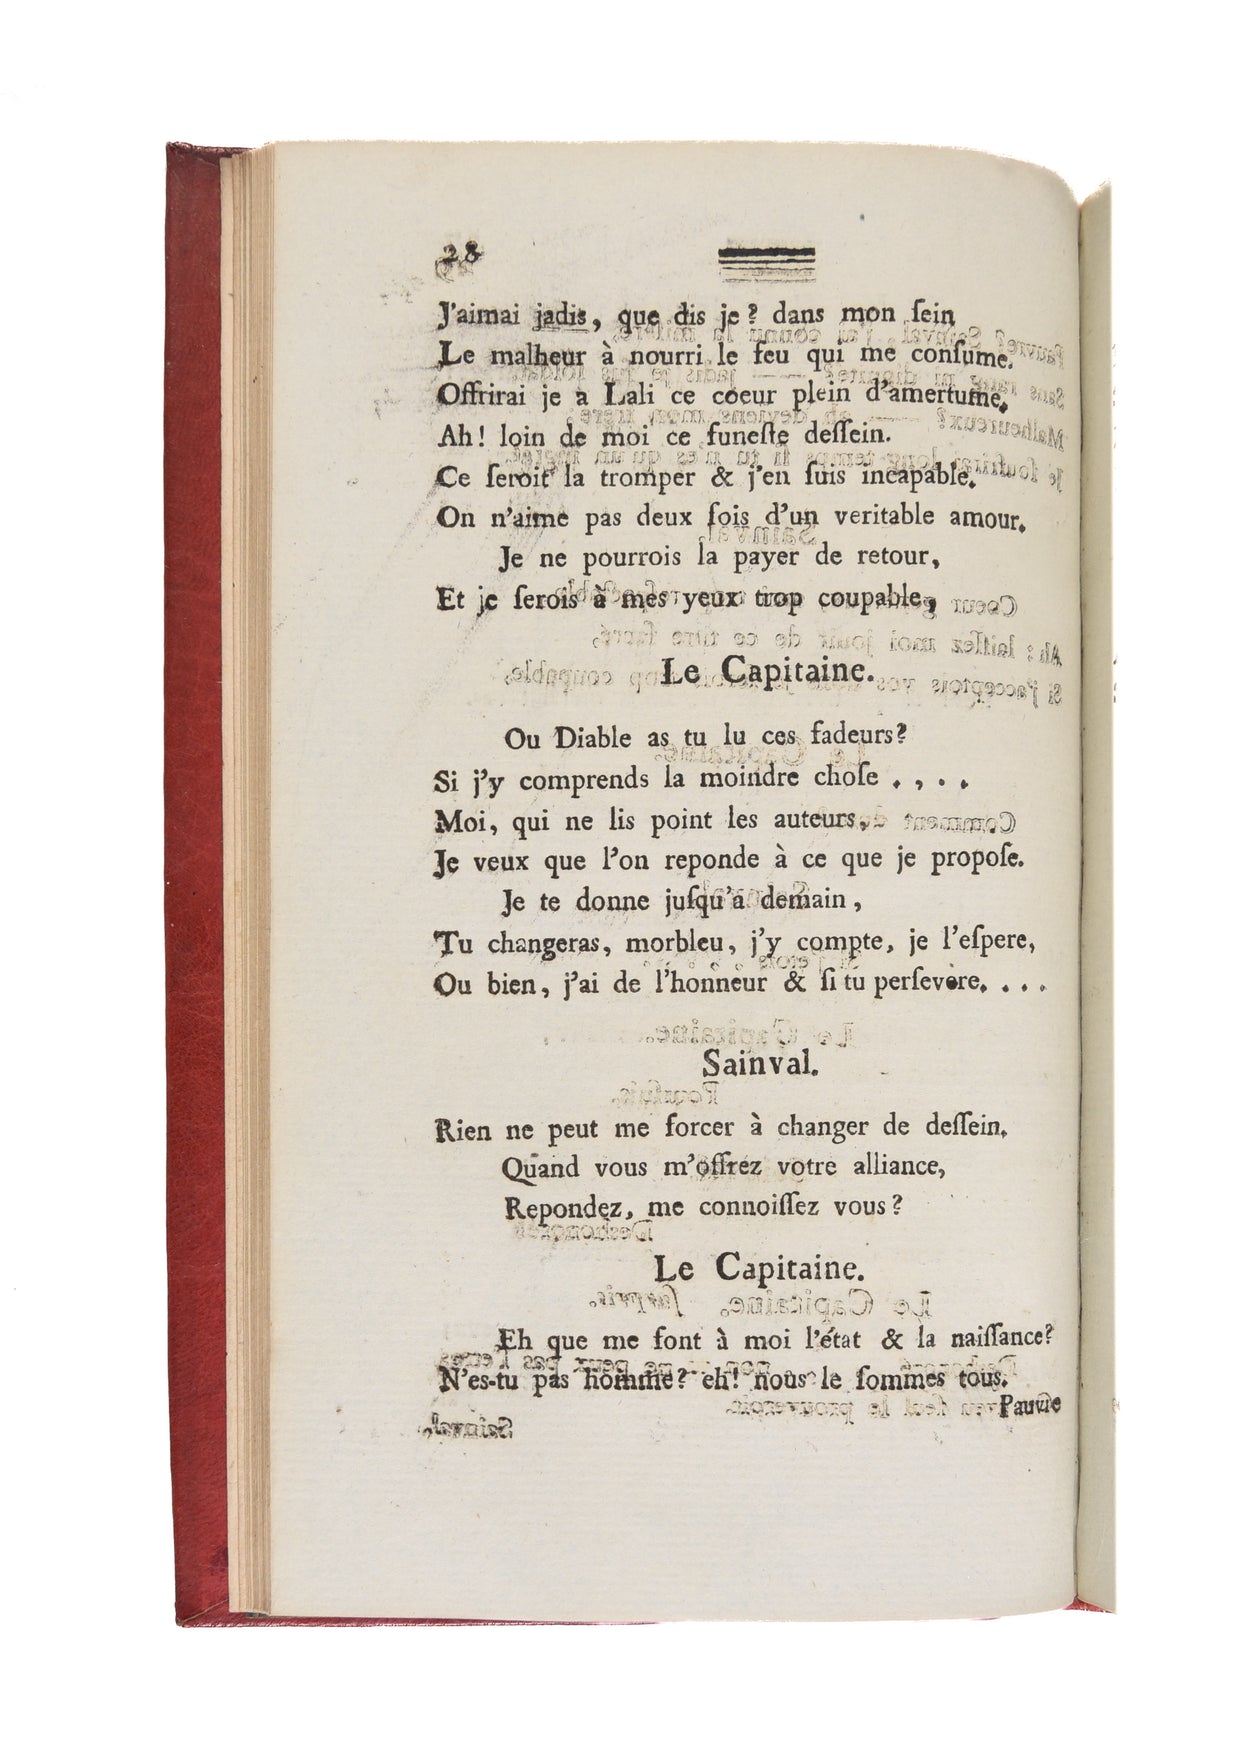 28
J'aimai jadis, que dis je? dans mon ſein
Le malheur à nourri le feu qui me conſume.
Offrirai je a Lali ce coeur plein d'amertume.
Ah! loin de moi ce funeſte deſſein.
Ce ſeroit la tromper & j'en ſuis incapable.
On n'aime pas deux fois d'un veritable amour.
Je ne pourrois la payer de retour,
Et je ſerois à mes yeux trop coupable,
Le Capitaine.
Ou Diable as tu lu ces fadeurs?
Si j'y comprends la moindre choſe . , . .
Moi, qui ne lis point les auteurs,
Je veux que l'on reponde à ce que je propoſe.
Je te donne juſqu'a demain,
Tu changeras, morbleu, j'y compte, je l'eſpere,
Ou bien, j'ai de l'honneur & ſi tu perſevère. . . .
Sainval.
Rien ne peut me forcer à changer de deſſein.
Quand vous m'offrez votre alliance,
Repondez, me connoiſſez vous?
Le Capitaine.
Eh que me font à moi l'état & la naiſſance?
N'es-tu pas homme? eh! nous le ſommes tous.
Pauvre